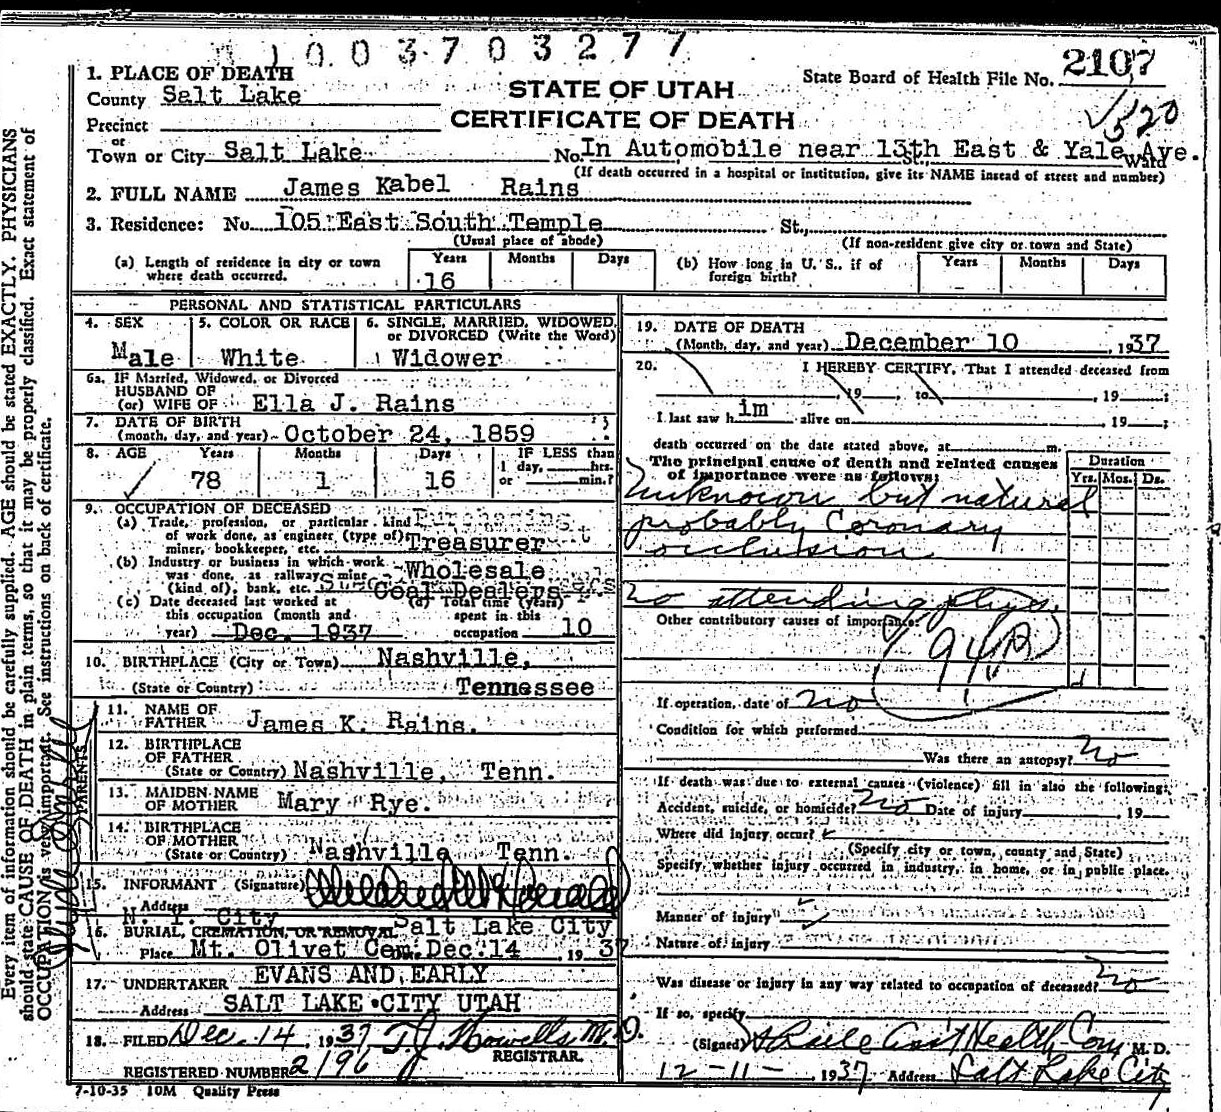 1003703277
1. PLACE OF DEATH
County Salt Lake
STATE OF UTAH
State Board of Health File No. 2107
CERTIFICATE OF DEATH
520
Precinct
or
Town or City Salt Lake No. In Automobile near 13th East & Yale Ave. St., Ward
(If death occurred in a hospital or institution, give its NAME instead of street and number)
2. FULL NAME James Kabel Rains
3. Residence: No. 105 East South Temple St.,
(Usual place of abode) (If non-resident give city or town and State)
(a) Length of residence in city or town where death occurred. Years 16 Months Days
(b) How long in U. S., if of foreign birth? Years Months Days
PERSONAL AND STATISTICAL PARTICULARS
4. SEX Male
5. COLOR OR RACE White
6. SINGLE, MARRIED, WIDOWED, or DIVORCED (Write the Word) Widower
6a. IF Married, Widowed, or Divorced
HUSBAND OF
(or) WIFE OF Ella J. Rains
7. DATE OF BIRTH
(month, day, and year) October 24, 1859
8. AGE Years 78 Months 1 Days 16 IF LESS than 1 day, hrs. or min.?
9. OCCUPATION OF DECEASED
(a) Trade, profession, or particular kind of work done, as engineer (type of) miner, bookkeeper, etc. Treasurer
(b) Industry or business in which work was done, as railway, mine (kind of), bank, etc. Wholesale Coal Dealers
(c) Date deceased last worked at this occupation (month and year) Dec. 1937
(d) Total time (years) spent in this occupation 10
10. BIRTHPLACE (City or Town) Nashville,
(State or Country) Tennessee
PARENTS
11. NAME OF FATHER James K. Rains.
12. BIRTHPLACE OF FATHER
(State or Country) Nashville, Tenn.
13. MAIDEN NAME OF MOTHER Mary Rye.
14. BIRTHPLACE OF MOTHER
(State or Country) Nashville Tenn.
15. INFORMANT (Signature)
Address N. Y. City
16. BURIAL, CREMATION, OR REMOVAL Salt Lake City
Place Mt. Olivet Cem. Date Dec. 14 1937
17. UNDERTAKER EVANS AND EARLY
Address SALT LAKE CITY UTAH
18. FILED Dec. 14, 1937 T.J. Howells M.D.
REGISTRAR.
REGISTERED NUMBER 2196
7-10-35 10M Quality Press
19. DATE OF DEATH
(Month, day, and year) December 10, 1937
20. I HEREBY CERTIFY, That I attended deceased from
, 19 , to , 19 ;
I last saw him alive on , 19 ;
death occurred on the date stated above, at m.
The principal cause of death and related causes of importance were as follows:
Duration
Yrs. Mos. Ds.
Unknown but natural
probably Coronary
occlusion
No attending phys.
Other contributory causes of importance:
94B
If operation, date of no
Condition for which performed
Was there an autopsy? no
If death was due to external causes (violence) fill in also the following:
Accident, suicide, or homicide? no Date of injury , 19
Where did injury occur?
(Specify city or town, county and State)
Specify, whether injury occurred in industry, in home, or in public place.
Manner of injury
Nature of injury
Was disease or injury in any way related to occupation of deceased? no
If so, specify
(Signed) Health Com M. D.
12-11- 1937 Address Salt Lake City
Every item of information should be carefully supplied. AGE should be stated EXACTLY. PHYSICIANS
should state CAUSE OF DEATH in plain terms, so that it may be properly classified. Exact statement of
OCCUPATION is very important. See instructions on back of certificate.